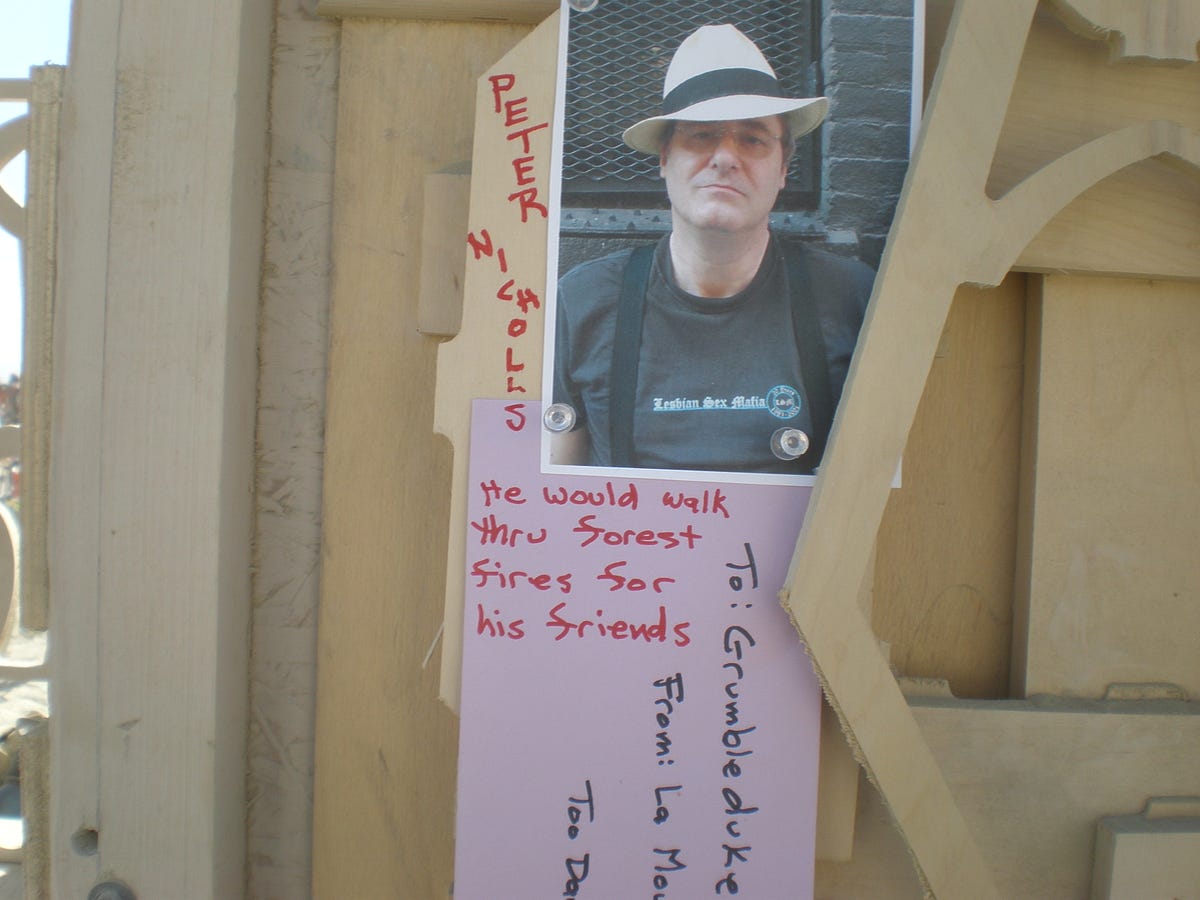 PETER
NICHOLLS
Lesbian Sex Mafia
LSM
He would walk
thru forest
fires for
his friends
To: Grumbleduke
From: La
Too